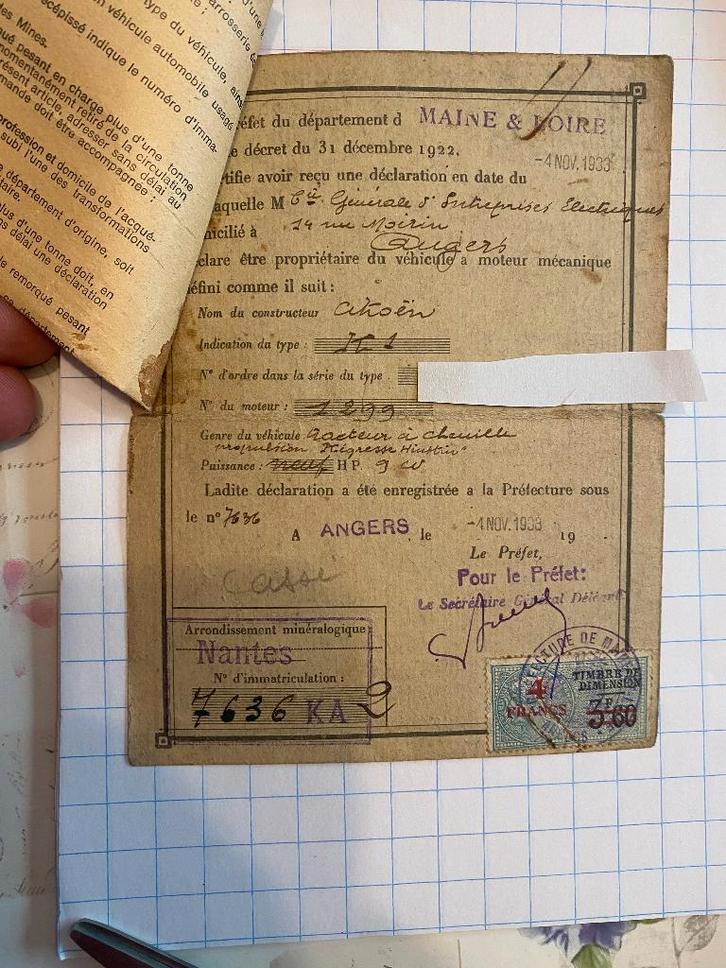 type du véhicule, ains
arrosserie
récépissé indique le numéro d'imma-
un véhicule automobile usagé
des Mines.
qué pesant en charge plus d'une tonne
momentanément retiré de la circulation
présent article, adresser sans délai au
mande doit être accompagnée :
profession et domicile de l'acqué-
subi l'une des transformations
département d'origine, soit
taire.
plus d'une tonne doit, en
ns délai une déclaration
le remorqué pesant
département
éfet du département d MAINE & LOIRE
e décret du 31 décembre 1922.
-4 NOV. 1933
rtifie avoir reçu une déclaration en date du
aquelle M Cie Générale d'Entreprises Electriques
micilié à 14 rue
Angers
clare être propriétaire du véhicule à moteur mécanique
éfini comme il suit :
Nom du constructeur Citroën
Indication du type :
N° d'ordre dans la série du type .
N° du moteur : 1299
Genre du véhicule Tracteur à chenille
propulsion Kégresse Hinstin
Puissance : HP. 9 cv
Ladite déclaration a été enregistrée a la Préfecture sous
le n° 7636
A ANGERS, le -4 NOV. 1933 19
Le Préfet,
Cassé
Pour le Préfet:
Le Secrétaire Général Délégué
Arrondissement minéralogique
Nantes
N° d'immatriculation :
7636 KA 2
PRÉFECTURE DE MAI
4
FRANCS
TIMBRE DE
DIMENSION
3F
3.60